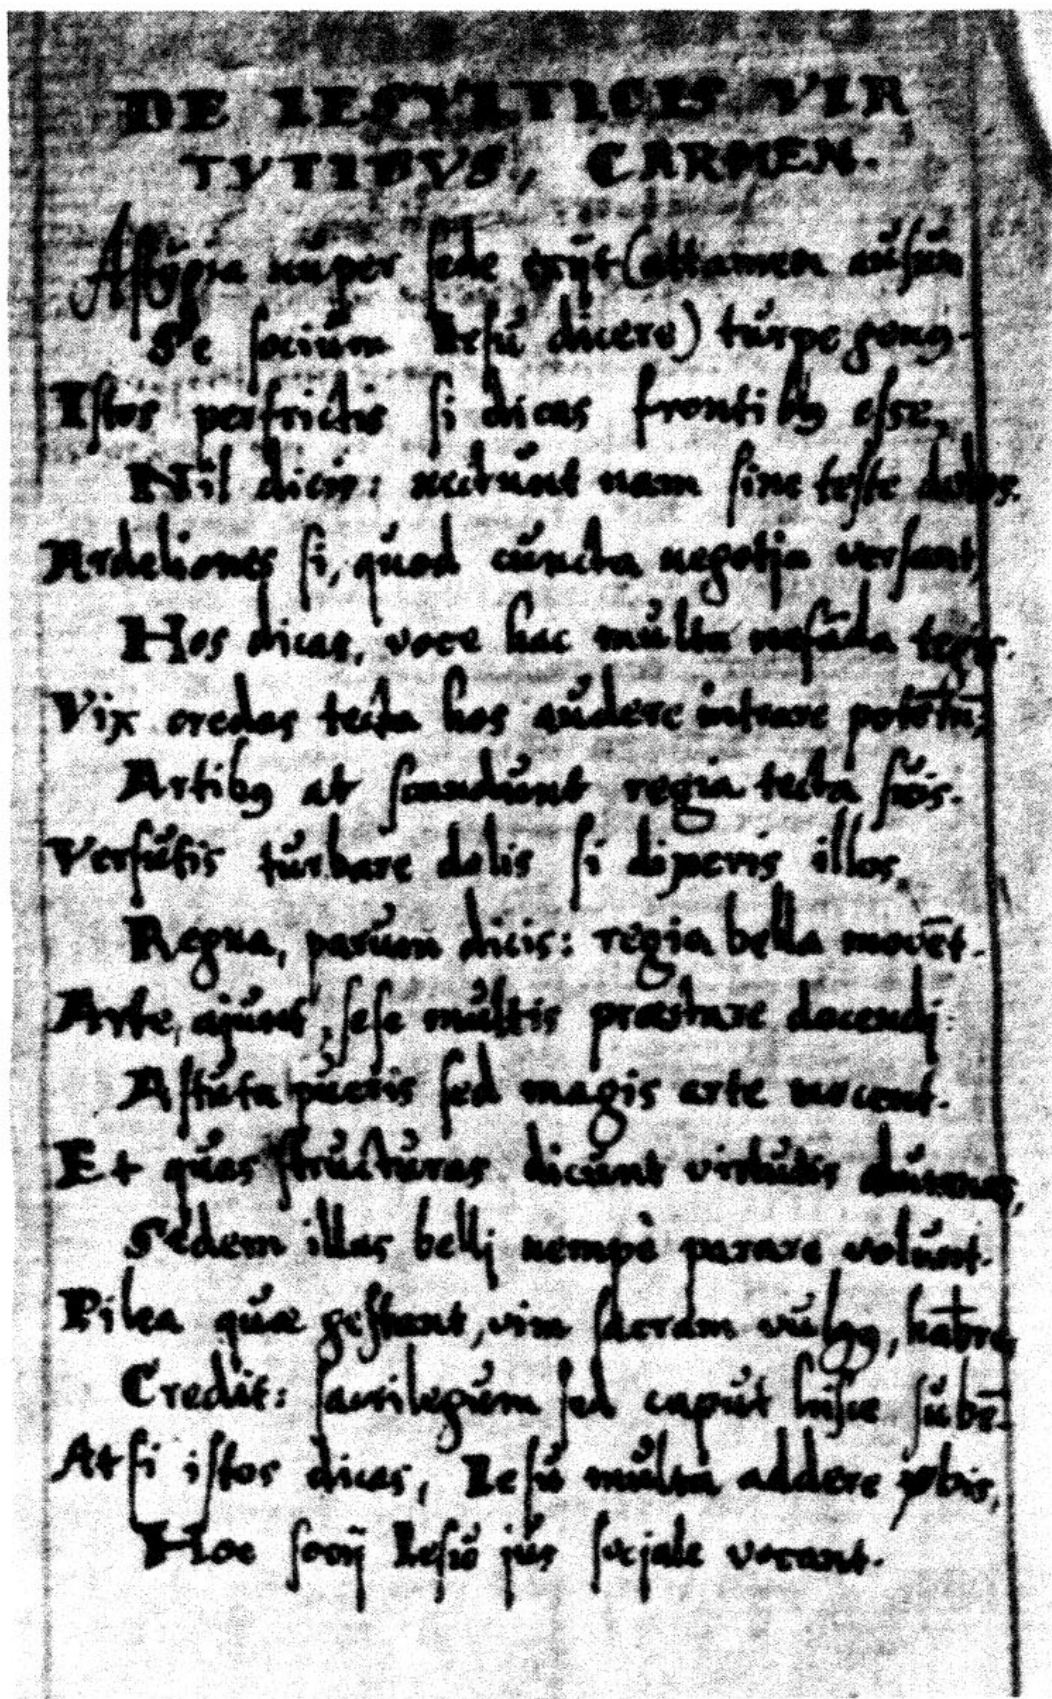 DE IESVITICIS VIR
TVTIBVS, CARMEN.
A stygia nuper sede exijt (attamen ausum
Se socium Iesu dicere) turpe genꝰ.
Istos perfrictis si dicas frontibꝰ esse,
Nil dicis: nectunt nam sine teste dolos.
Ardeliones si, quod cuncta negotja versant,
Hos dicas, voce hac multa nefāda tegis.
Vix credas tecta hos audere intrare potētū;
Artibꝰ at scandunt regia tecta suis.
Versutis turbare dolis si dixeris illos
Regna, parum dicis: regia bella movēt.
Arte, ajunt, sese multis præstare docendj:
Astuta pueris sed magis arte nocent.
Et quas structuras dicunt virtutis alumnas,
Sedem illas bellj nempè parare volunt.
Pilea quæ gestant, vim sacram vulgꝰ, habre
Credit: sacrilegum sed caput huisce subē.
At si istos dicas, Iesu multa addere verbis,
Hoc socij Iesu jus socjale vocant.